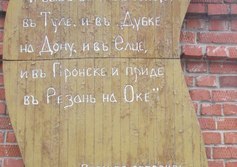 въ Туле, и въ Дубке
на Дону, и въ Елце,
и въ Пронске и приде
въ Резань на Оке"